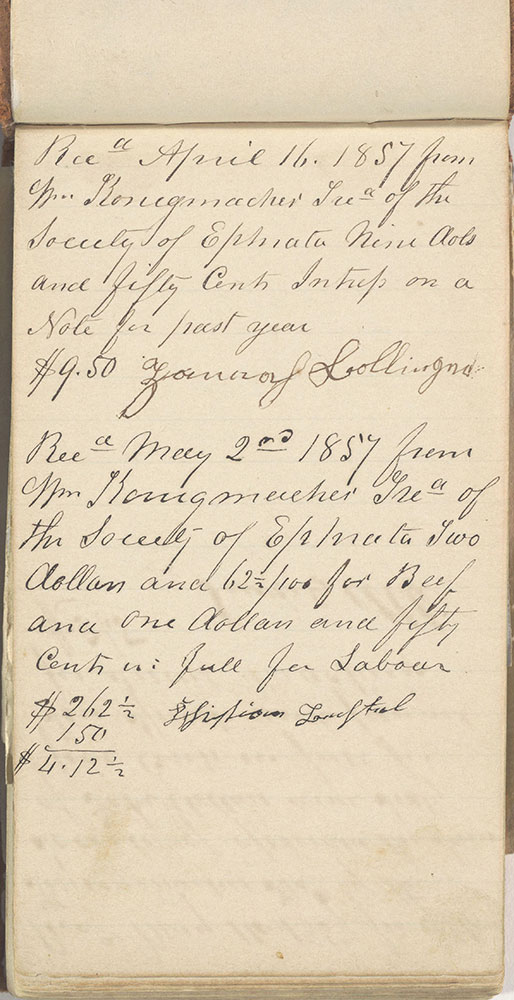 Recd April 16. 1857 from
Wm Konigmacher Trea of the
Society of Ephrata Nine dols
and fifty Cents Intrest on a
Note for past year
$9.50
Recd May 2nd 1857 from
Wm Konigmacher Trea of
the Society of Ephrata Two
dollars and 62½/100 for Beef
and One dollar and fifty
Cents in full for Labour
$ 262½
150
$ 4.12½